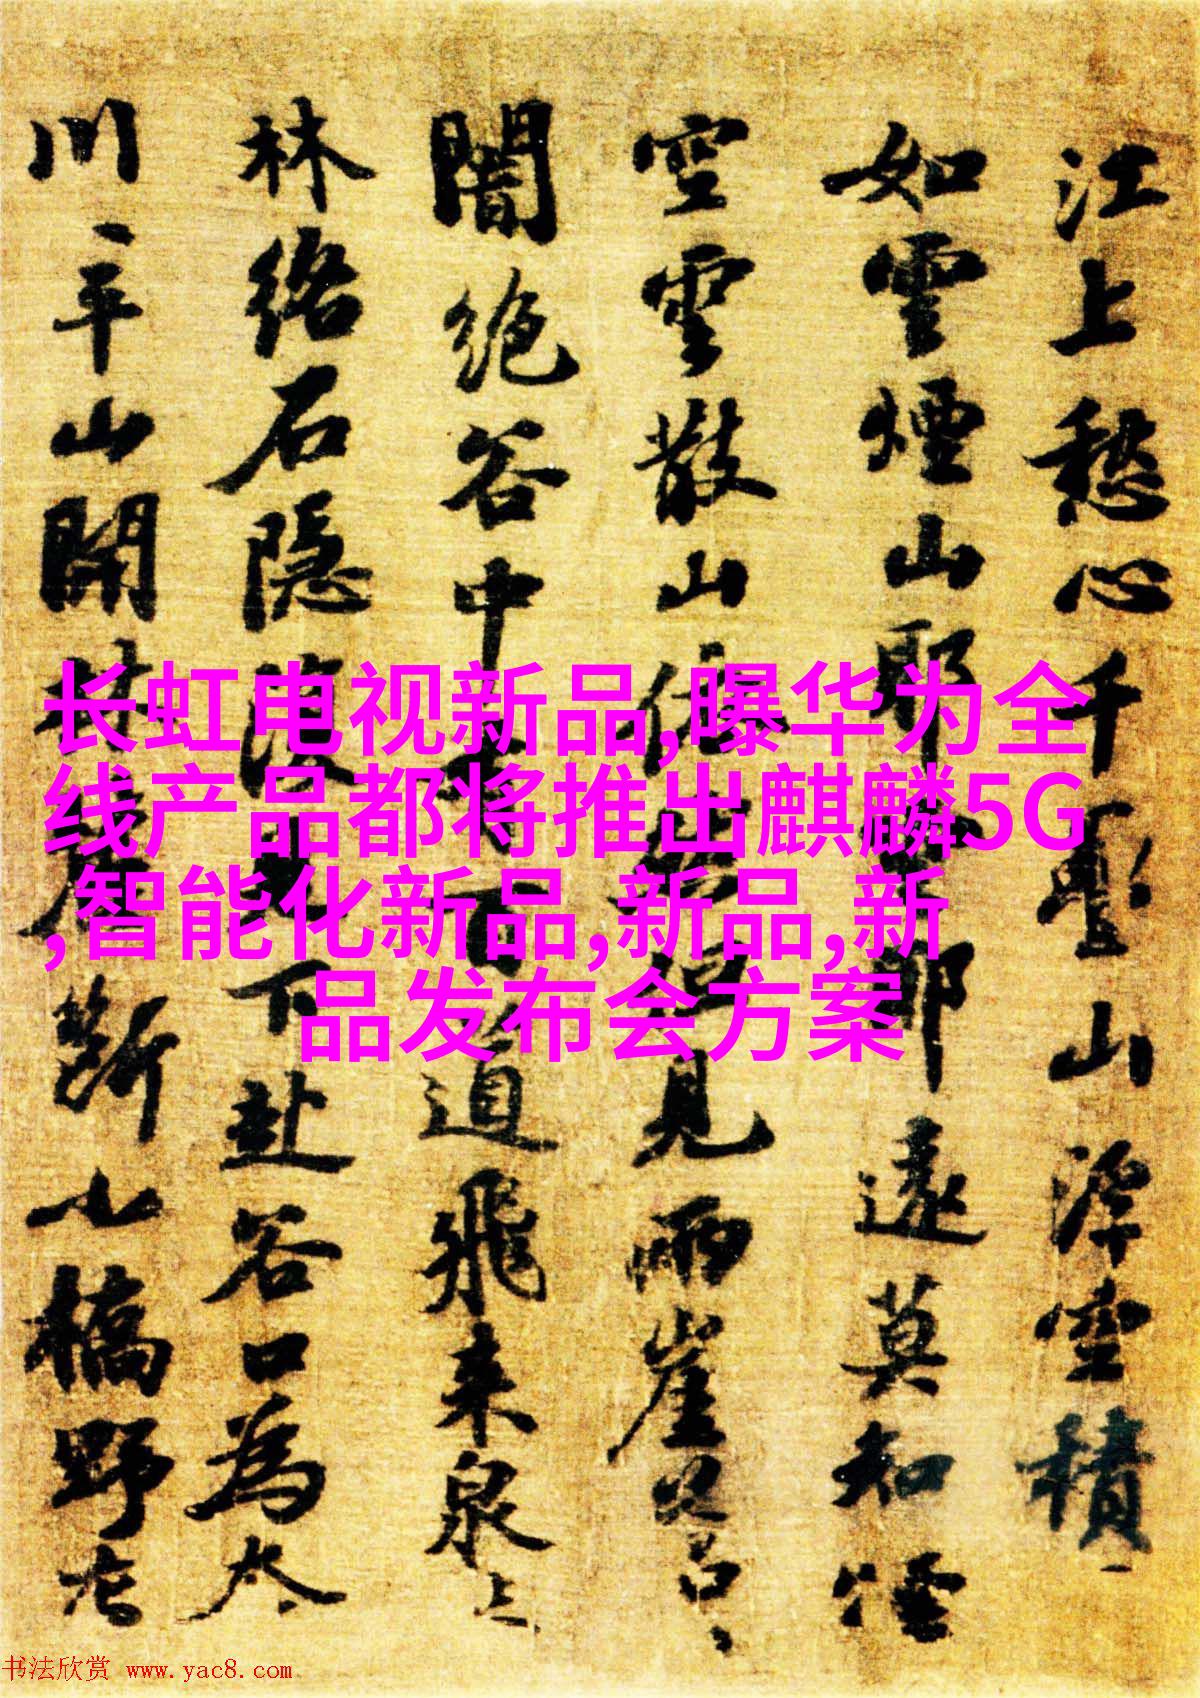 江上愁心千疊山浮空積
如雲煙山耶雲耶遠莫知煙
空雲散山依然但見兩崖
闇絕谷中有百道飛來泉
林絡石隱復見下赴谷口為
川平山開林麓斷小橋野
长虹电视新品,曝华为全
线产品都将推出麒麟5G
,智能化新品,新品,新
品发布会方案
书法欣赏 www.yac8.com